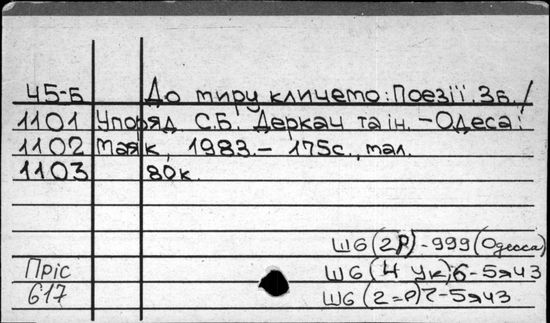 Ч5-Б До миру кличемо: Поезії. Зб. /
1101 Упоряд С.Б. Деркач та ін. - Одеса:
1102 Маяк, 1983. - 175с., мал.
1103 80к.
Ш6(2Р)-999(Одесса)
Пріс Ш6(4 Ук)6-5я43
617 Ш6(2=Р)7-5я43